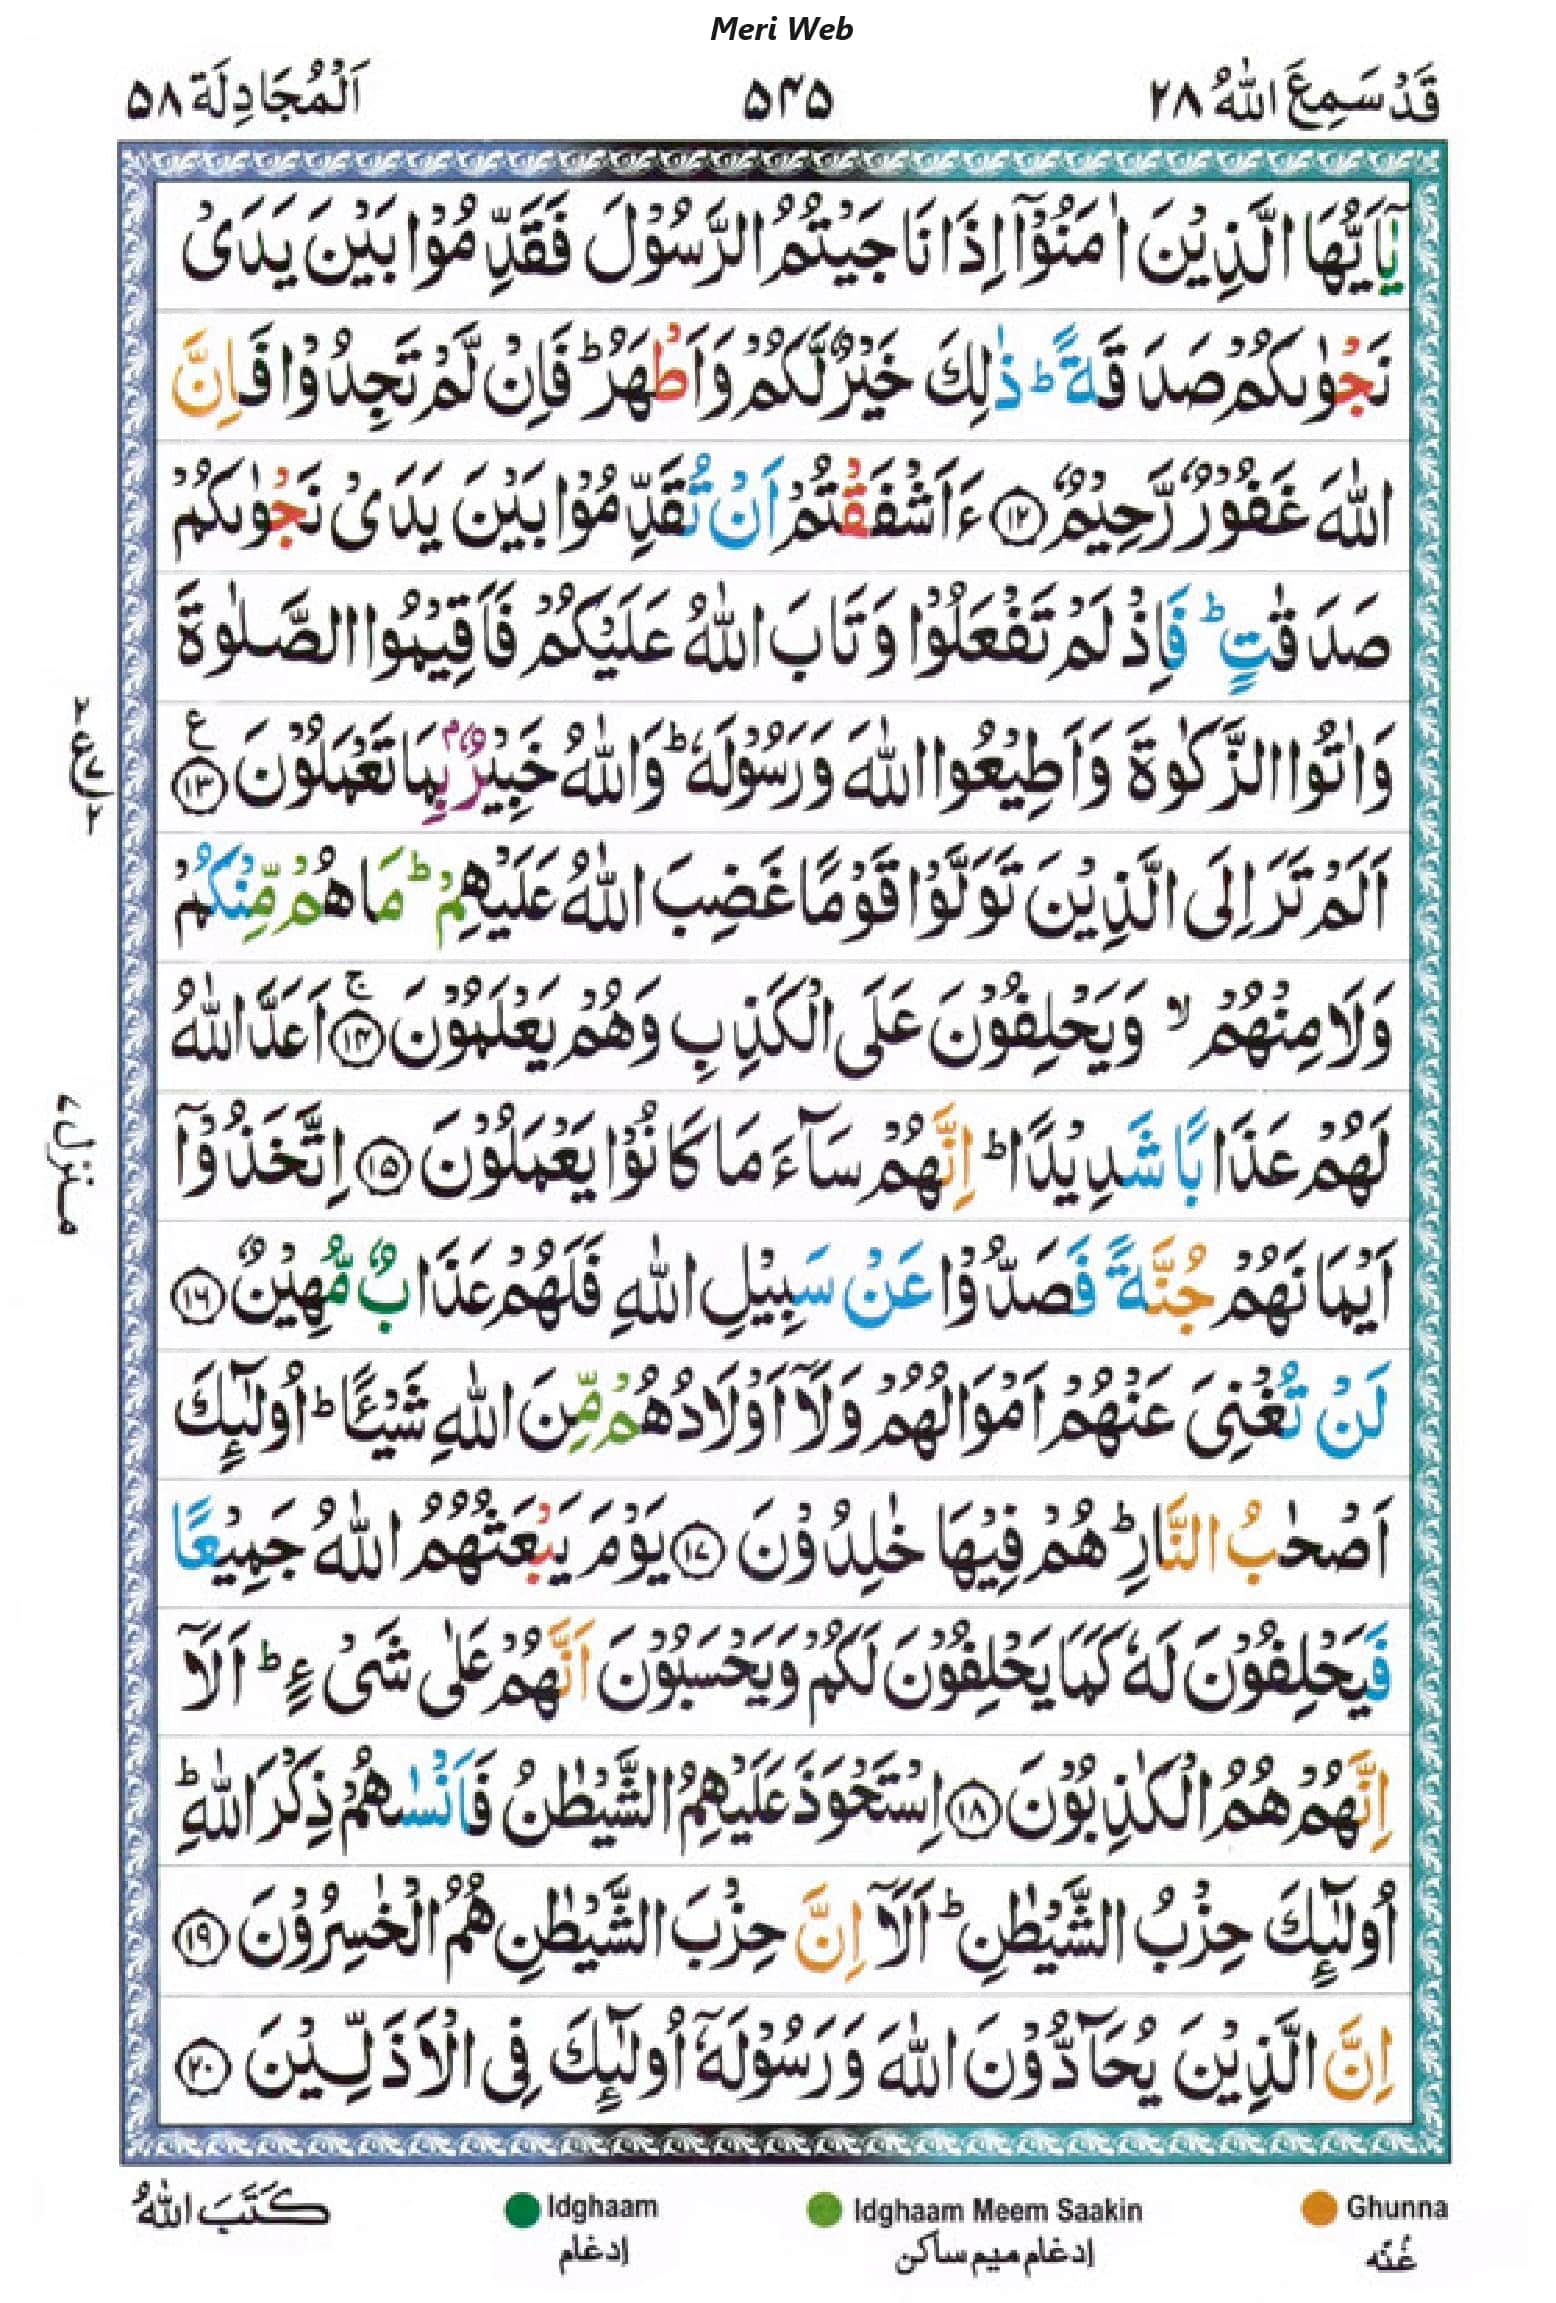 Meri Web
قَدْ سَمِعَ اللّٰهُ ۲۸
۵۴۵
اَلْمُجَادِلَة ۵۸
يٰۤاَيُّهَا الَّذِيْنَ اٰمَنُوْۤا اِذَا نَاجَيْتُمُ الرَّسُوْلَ فَقَدِّمُوْا بَيْنَ يَدَىْ
نَجْوٰىكُمْ صَدَقَةً ؕ ذٰلِكَ خَيْرٌ لَّكُمْ وَاَطْهَرُ ؕ فَاِنْ لَّمْ تَجِدُوْا فَاِنَّ
اللّٰهَ غَفُوْرٌ رَّحِيْمٌ ۝۱۲ ءَاَشْفَقْتُمْ اَنْ تُقَدِّمُوْا بَيْنَ يَدَىْ نَجْوٰىكُمْ
صَدَقٰتٍ ؕ فَاِذْ لَمْ تَفْعَلُوْا وَتَابَ اللّٰهُ عَلَيْكُمْ فَاَقِيْمُوا الصَّلٰوةَ
وَاٰتُوا الزَّكٰوةَ وَاَطِيْعُوا اللّٰهَ وَرَسُوْلَهٗ ؕ وَاللّٰهُ خَبِيْرٌۢ بِمَا تَعْمَلُوْنَ ۝۱۳ ع
اَلَمْ تَرَ اِلَى الَّذِيْنَ تَوَلَّوْا قَوْمًا غَضِبَ اللّٰهُ عَلَيْهِمْ ؕ مَا هُمْ مِّنْكُمْ
وَلَا مِنْهُمْ ۙ وَيَحْلِفُوْنَ عَلَى الْكَذِبِ وَهُمْ يَعْلَمُوْنَ ۝۱۴ ۚ اَعَدَّ اللّٰهُ
لَهُمْ عَذَابًا شَدِيْدًا ؕ اِنَّهُمْ سَآءَ مَا كَانُوْا يَعْمَلُوْنَ ۝۱۵ اِتَّخَذُوْۤا
اَيْمَانَهُمْ جُنَّةً فَصَدُّوْا عَنْ سَبِيْلِ اللّٰهِ فَلَهُمْ عَذَابٌ مُّهِيْنٌ ۝۱۶
لَنْ تُغْنِىَ عَنْهُمْ اَمْوَالُهُمْ وَلَاۤ اَوْلَادُهُمْ مِّنَ اللّٰهِ شَيْـًٔا ؕ اُولٰٓئِكَ
اَصْحٰبُ النَّارِ ؕ هُمْ فِيْهَا خٰلِدُوْنَ ۝۱۷ يَوْمَ يَبْعَثُهُمُ اللّٰهُ جَمِيْعًا
فَيَحْلِفُوْنَ لَهٗ كَمَا يَحْلِفُوْنَ لَكُمْ وَيَحْسَبُوْنَ اَنَّهُمْ عَلٰى شَىْءٍ ؕ اَلَاۤ
اِنَّهُمْ هُمُ الْكٰذِبُوْنَ ۝۱۸ اِسْتَحْوَذَ عَلَيْهِمُ الشَّيْطٰنُ فَاَنْسٰىهُمْ ذِكْرَ اللّٰهِ ؕ
اُولٰٓئِكَ حِزْبُ الشَّيْطٰنِ ؕ اَلَاۤ اِنَّ حِزْبَ الشَّيْطٰنِ هُمُ الْخٰسِرُوْنَ ۝۱۹
اِنَّ الَّذِيْنَ يُحَآدُّوْنَ اللّٰهَ وَرَسُوْلَهٗۤ اُولٰٓئِكَ فِى الْاَذَلِّيْنَ ۝۲۰
منزل ۷
Ghunna
غُنّه
Idghaam Meem Saakin
إدغام ميم ساكن
Idghaam
إدغام
كَتَبَ اللّٰهُ